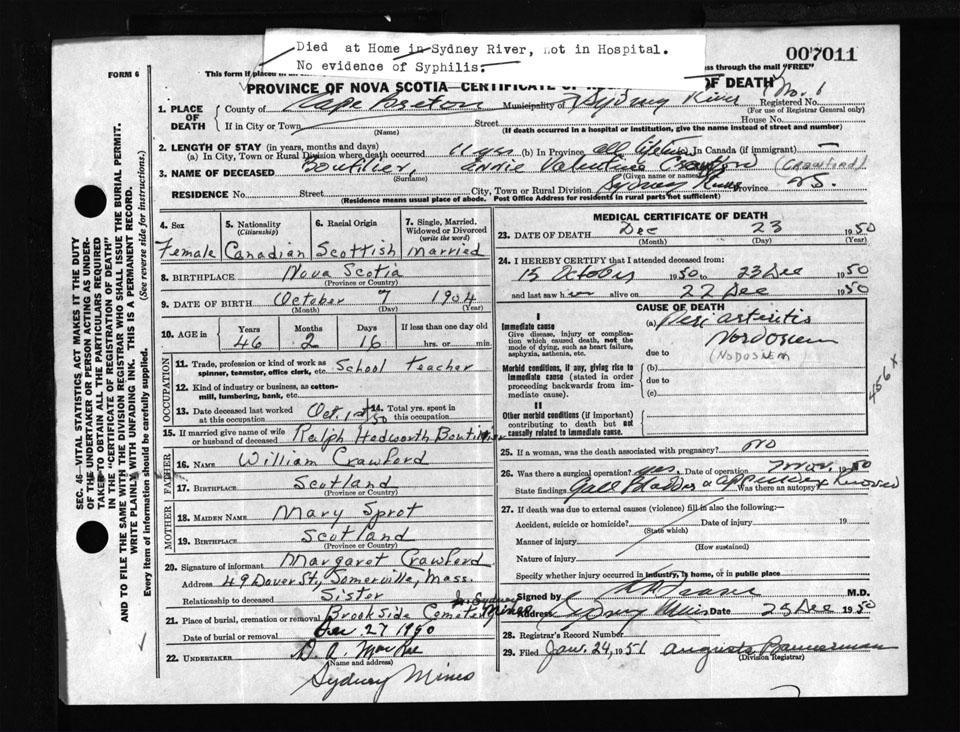 Died at Home in Sydney River, not in Hospital.
No evidence of Syphilis.
007011
FORM 6
This form if placed in an
ss through the mail "FREE"
PROVINCE OF NOVA SCOTIA—CERTIFICATE OF
OF DEATH
No. 1
1. PLACE OF DEATH
County of Cape Breton Municipality of Sydney River Registered No.
(For use of Registrar General only)
If in City or Town Street House No.
(Name) (If death occurred in a hospital or institution, give the name instead of street and number)
2. LENGTH OF STAY (in years, months and days)
(a) In City, Town or Rural Division where death occurred 11 yrs (b) In Province all lifetime (c) In Canada (if immigrant) —
3. NAME OF DECEASED Boutilier, Annie Valentine Crawford (Crawford)
(Surname) (Given name or names)
RESIDENCE No. Street City, Town or Rural Division Sydney River Province N.S.
(Residence means usual place of abode. Post Office Address for residents in rural parts not sufficient)
4. Sex 5. Nationality 6. Racial Origin 7. Single, Married, Widowed or Divorced
(Citizenship) (write the word)
Female Canadian Scottish Married
8. BIRTHPLACE Nova Scotia
(Province or Country)
9. DATE OF BIRTH October 7 1904
(Month) (Day) (Year)
10. AGE in Years Months Days If less than one day old
46 2 16 hrs. or min.
OCCUPATION
11. Trade, profession or kind of work as School Teacher
spinner, teamster, office clerk, etc.
12. Kind of industry or business, as cotton-
mill, lumbering, bank, etc.
13. Date deceased last worked at this occupation Oct. 1st/50 14. Total yrs. spent in this occupation
15. If married give name of wife or husband of deceased Ralph Hedworth Boutilier
FATHER
16. NAME William Crawford
17. BIRTHPLACE Scotland
(Province or Country)
MOTHER
18. MAIDEN NAME Mary Sprot
19. BIRTHPLACE Scotland
(Province or Country)
20. Signature of informant Margaret Crawford
Address 49 Dover St, Somerville, Mass.
Relationship to deceased Sister
21. Place of burial, cremation or removal Brookside Cemetery in Sydney Mines
Date of burial or removal Dec. 27 1950
22. UNDERTAKER D. A. MacRae
(Name and address)
Sydney Mines
MEDICAL CERTIFICATE OF DEATH
23. DATE OF DEATH Dec 23 1950
(Month) (Day) (Year)
24. I HEREBY CERTIFY that I attended deceased from:
15 October 1950 to 23 Dec 1950
and last saw her alive on 22 Dec 1950
CAUSE OF DEATH
I
Immediate cause (a) Peri arteritis
Give disease, injury or complication which caused death, not the mode of dying, such as heart failure, asphyxia, asthenia, etc. due to
Nordosum
(NODOSUEM
Morbid conditions, if any, giving rise to immediate cause (stated in order proceeding backwards from immediate cause). (b)
due to
(c)
II
Other morbid conditions (if important) contributing to death but not causally related to immediate cause.
456 x
25. If a woman, was the death associated with pregnancy? No
26. Was there surgical operation? yes. Date of operation Nov. 1950
State findings Gall Bladder & appendix removed Was there an autopsy?
27. If death was due to external causes (violence) fill in also the following:—
Accident, suicide or homicide? Date of injury 19
(State which)
Manner of injury
(How sustained)
Nature of injury
Specify whether injury occurred in industry, in home, or in public place
Signed by M.D.
Address Sydney Mines Date 25 Dec 1950
28. Registrar's Record Number
29. Filed Jan. 24, 1951 Augusta Bannerman
(Division Registrar)
SEC. 46—VITAL STATISTICS ACT MAKES IT THE DUTY
OF THE UNDERTAKER OR PERSON ACTING AS UNDER-
TAKER TO OBTAIN ALL THE PARTICULARS REQUIRED
IN THE "CERTIFICATE OF REGISTRATION OF DEATH"
AND TO FILE THE SAME WITH THE DIVISION REGISTRAR WHO SHALL ISSUE THE BURIAL PERMIT.
WRITE PLAINLY WITH UNFADING INK. THIS IS A PERMANENT RECORD.
Every item of information should be carefully supplied. (See reverse side for instructions.)